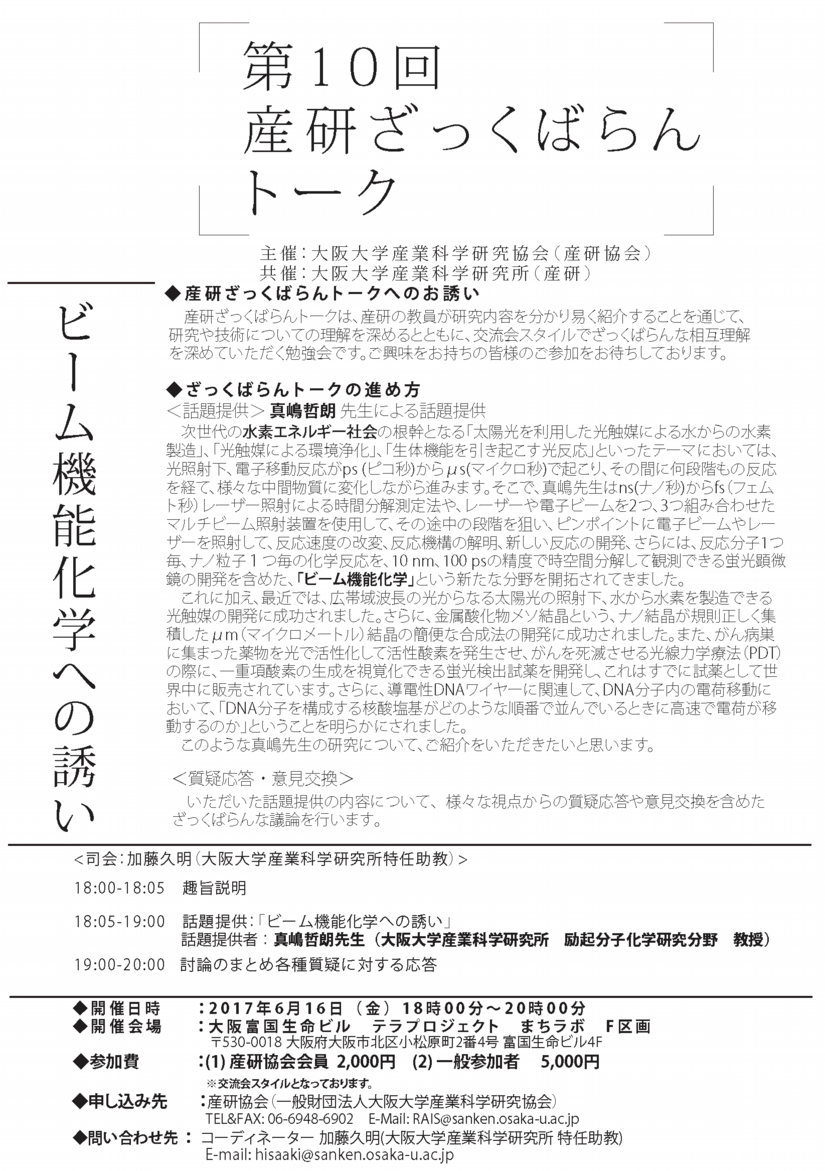 第10回
産研ざっくばらん
トーク
主催：大阪大学産業科学研究協会（産研協会）
共催：大阪大学産業科学研究所（産研）
ビーム機能化学への誘い
◆産研ざっくばらんトークへのお誘い
産研ざっくばらんトークは、産研の教員が研究内容を分かり易く紹介することを通じて、
研究や技術についての理解を深めるとともに、交流会スタイルでざっくばらんな相互理解
を深めていただく勉強会です。ご興味をお持ちの皆様のご参加をお待ちしております。
◆ざっくばらんトークの進め方
＜話題提供＞ 真嶋哲朗 先生による話題提供
次世代の水素エネルギー社会の根幹となる「太陽光を利用した光触媒による水からの水素
製造」、「光触媒による環境浄化」、「生体機能を引き起こす光反応」といったテーマにおいては、
光照射下、電子移動反応がps (ピコ秒)からμs(マイクロ秒)で起こり、その間に何段階もの反応
を経て、様々な中間物質に変化しながら進みます。そこで、真嶋先生はns(ナノ秒)からfs（フェム
ト秒）レーザー照射による時間分解測定法や、レーザーや電子ビームを2つ、3つ組み合わせた
マルチビーム照射装置を使用して、その途中の段階を狙い、ピンポイントに電子ビームやレー
ザーを照射して、反応速度の改変、反応機構の解明、新しい反応の開発、さらには、反応分子1つ
毎、ナノ粒子１つ毎の化学反応を、10 nm、100 psの精度で時空間分解して観測できる蛍光顕微
鏡の開発を含めた、「ビーム機能化学」という新たな分野を開拓されてきました。
これに加え、最近では、広帯域波長の光からなる太陽光の照射下、水から水素を製造できる
光触媒の開発に成功されました。さらに、金属酸化物メソ結晶という、ナノ結晶が規則正しく集
積したμm（マイクロメートル）結晶の簡便な合成法の開発に成功されました。また、がん病巣
に集まった薬物を光で活性化して活性酸素を発生させ、がんを死滅させる光線力学療法（PDT）
の際に、一重項酸素の生成を視覚化できる蛍光検出試薬を開発し、これはすでに試薬として世
界中に販売されています。さらに、導電性DNAワイヤーに関連して、DNA分子内の電荷移動に
おいて、「DNA分子を構成する核酸塩基がどのような順番で並んでいるときに高速で電荷が移
動するのか」ということを明らかにされました。
このような真嶋先生の研究について、ご紹介をいただきたいと思います。
＜質疑応答・意見交換＞
いただいた話題提供の内容について、様々な視点からの質疑応答や意見交換を含めた
ざっくばらんな議論を行います。
<司会：加藤久明（大阪大学産業科学研究所特任助教）>
18:00-18:05 趣旨説明
18:05-19:00 話題提供：「ビーム機能化学への誘い」
話題提供者：真嶋哲朗先生（大阪大学産業科学研究所 励起分子化学研究分野 教授）
19:00-20:00 討論のまとめ各種質疑に対する応答
◆開催日時 ：2017年6月16日（金）18時00分〜20時00分
◆開催会場 ：大阪富国生命ビル テラプロジェクト まちラボ F区画
〒530-0018 大阪府大阪市北区小松原町2番4号 富国生命ビル4F
◆参加費 ：(1) 産研協会会員 2,000円 (2) 一般参加者 5,000円
※交流会スタイルとなっております。
◆申し込み先 ：産研協会（一般財団法人大阪大学産業科学研究協会）
TEL&FAX: 06-6948-6902 E-Mail: RAIS@sanken.osaka-u.ac.jp
◆問い合わせ先 ： コーディネーター 加藤久明(大阪大学産業科学研究所 特任助教)
E-mail: hisaaki@sanken.osaka-u.ac.jp